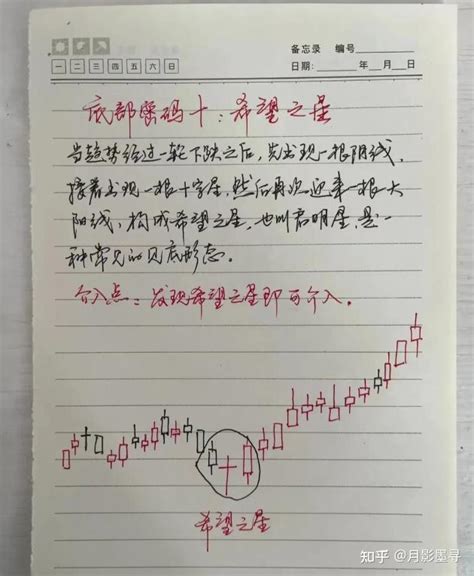 备忘录 编号
一 二 三 四 五 六 日 日期: 年 月 日
底部密码十:希望之星
当趋势经过一轮下跌之后,先出现一根阴线,
接着出现一根十字星,然后再次迎来一根大
阳线,构成希望之星,也叫启明星,是一
种常见的见底形态。
介入点:发现希望之星即可介入。
希望之星
知乎 @月影墨寻